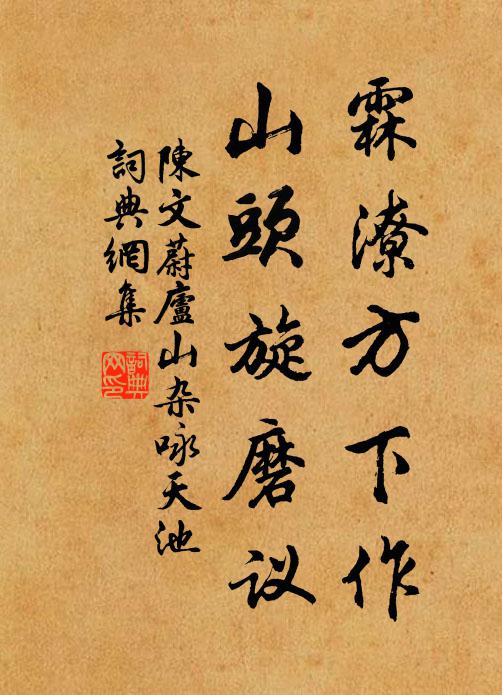 霖潦方下作
山頭旋磨议
陳文蔚廬山杂咏天池
詞典網集
詞典网印